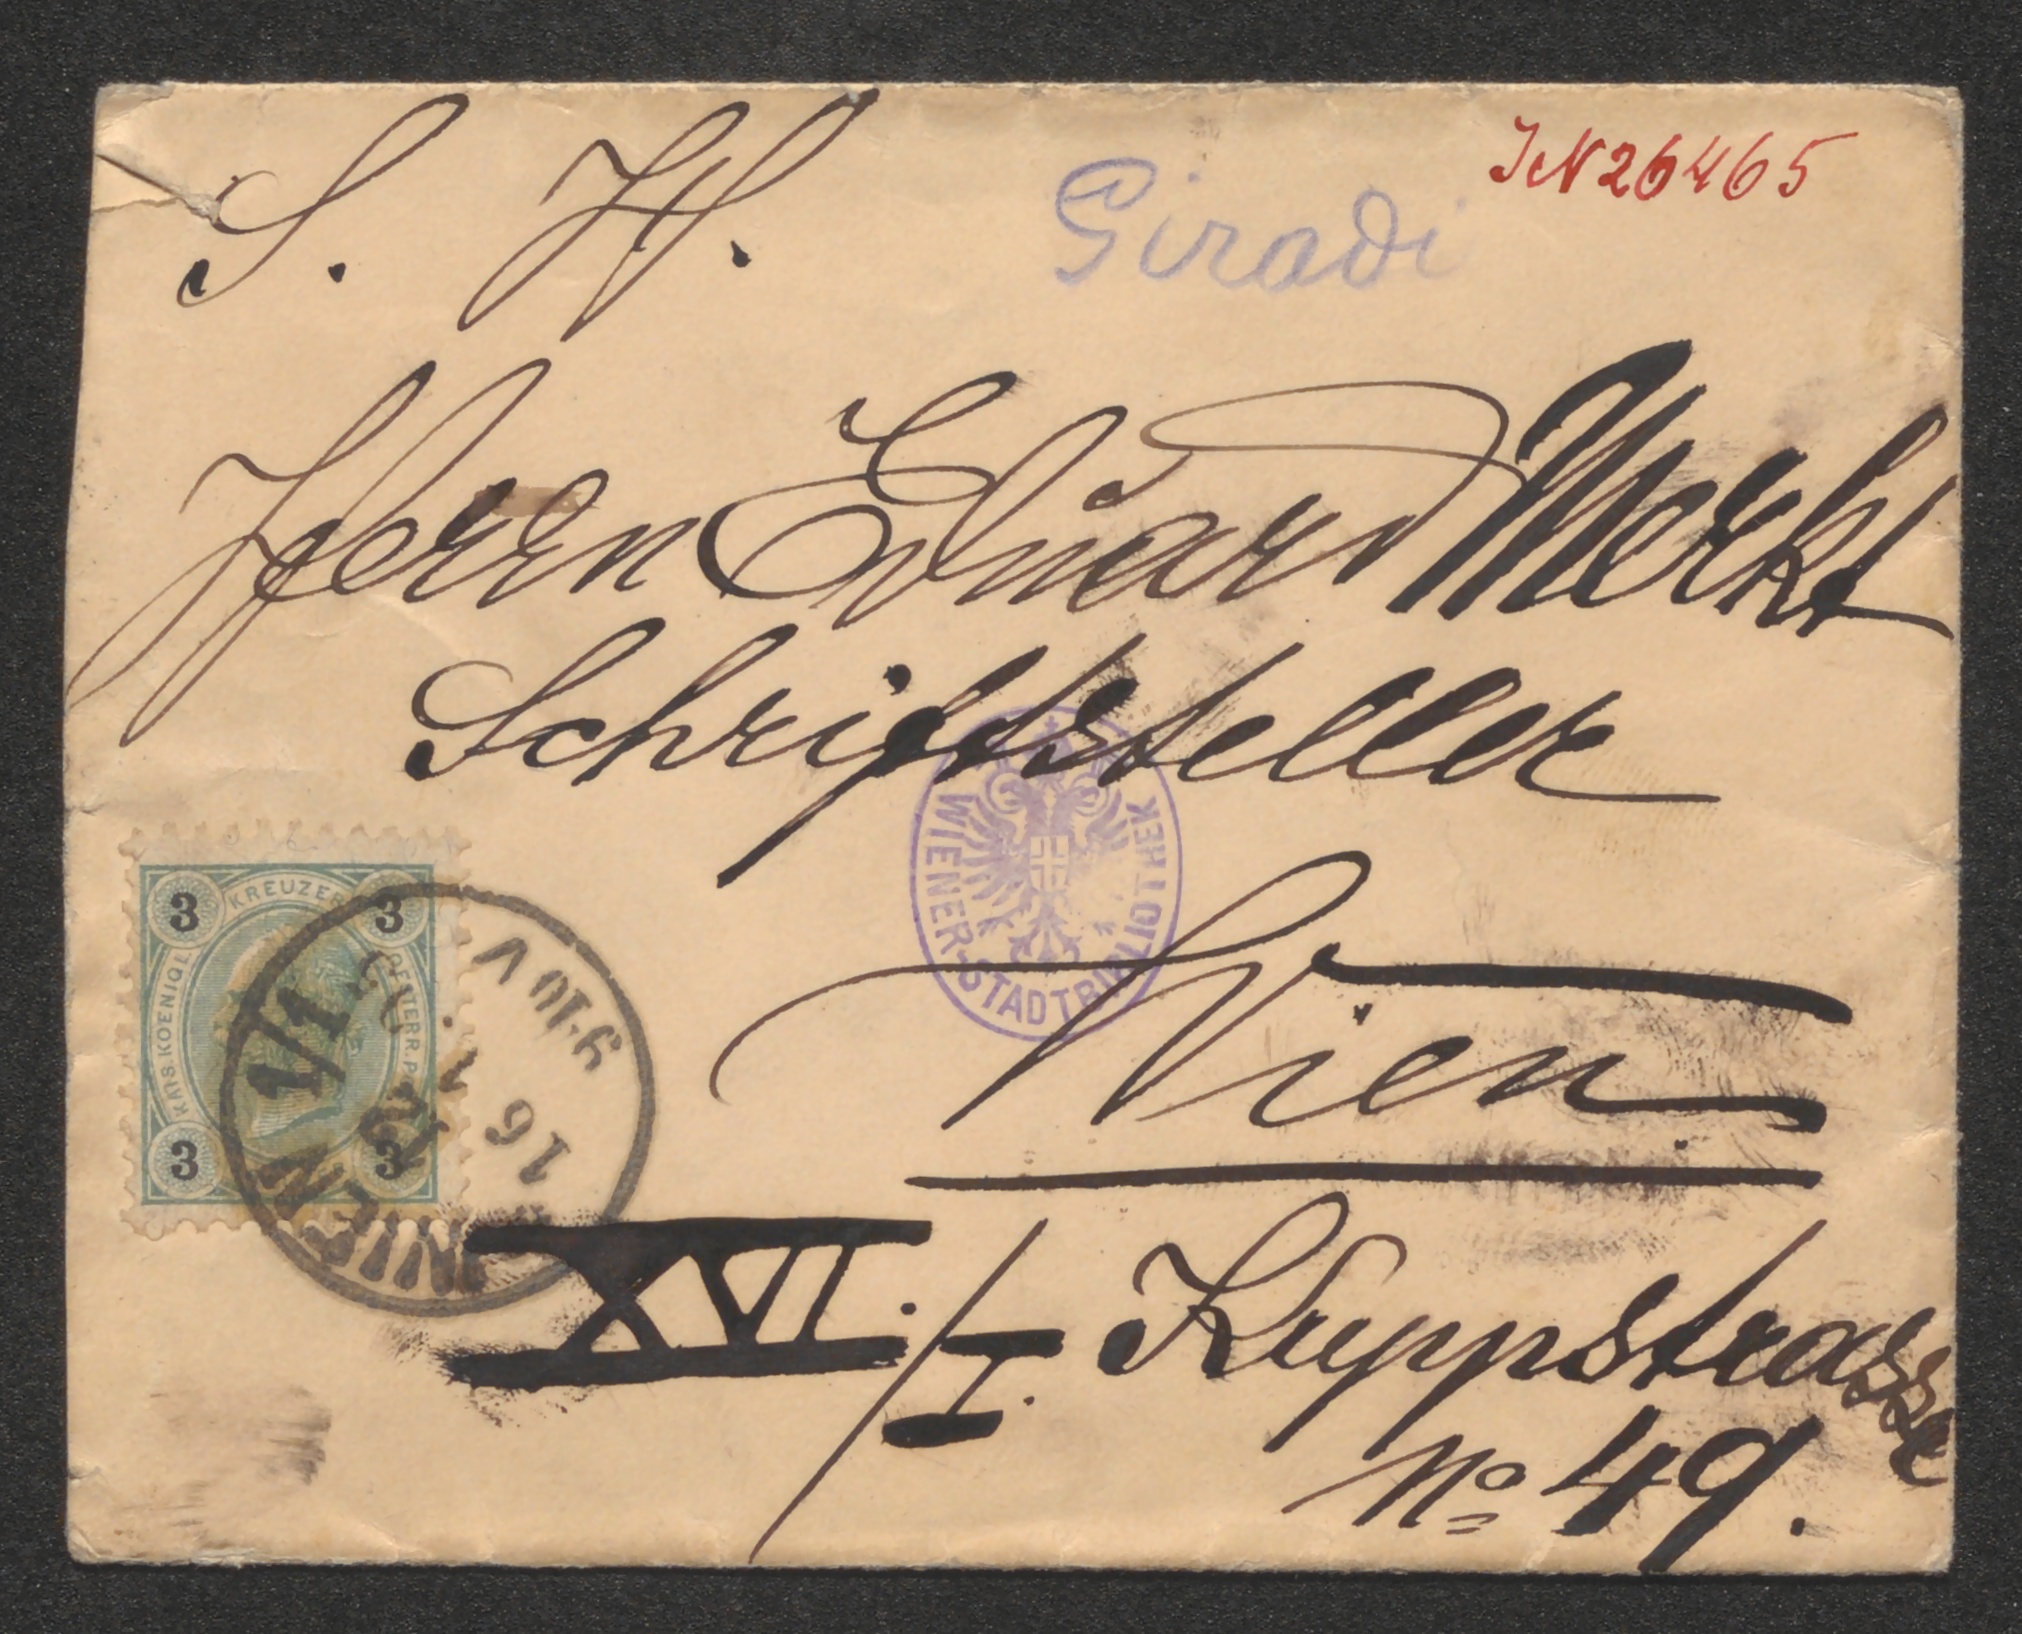 S. H.
Giradi
IN 26465
Herrn Eduard Merkt
Schriftsteller
WIENER-STADTBIBLIOTHEK
Wien
3 KREUZER 3
KAIS.KOENIGL. OESTERR.P
3 3
WIEN 1/1
16
9-10 V
XVI./I. Kuppstrasse
No 49.